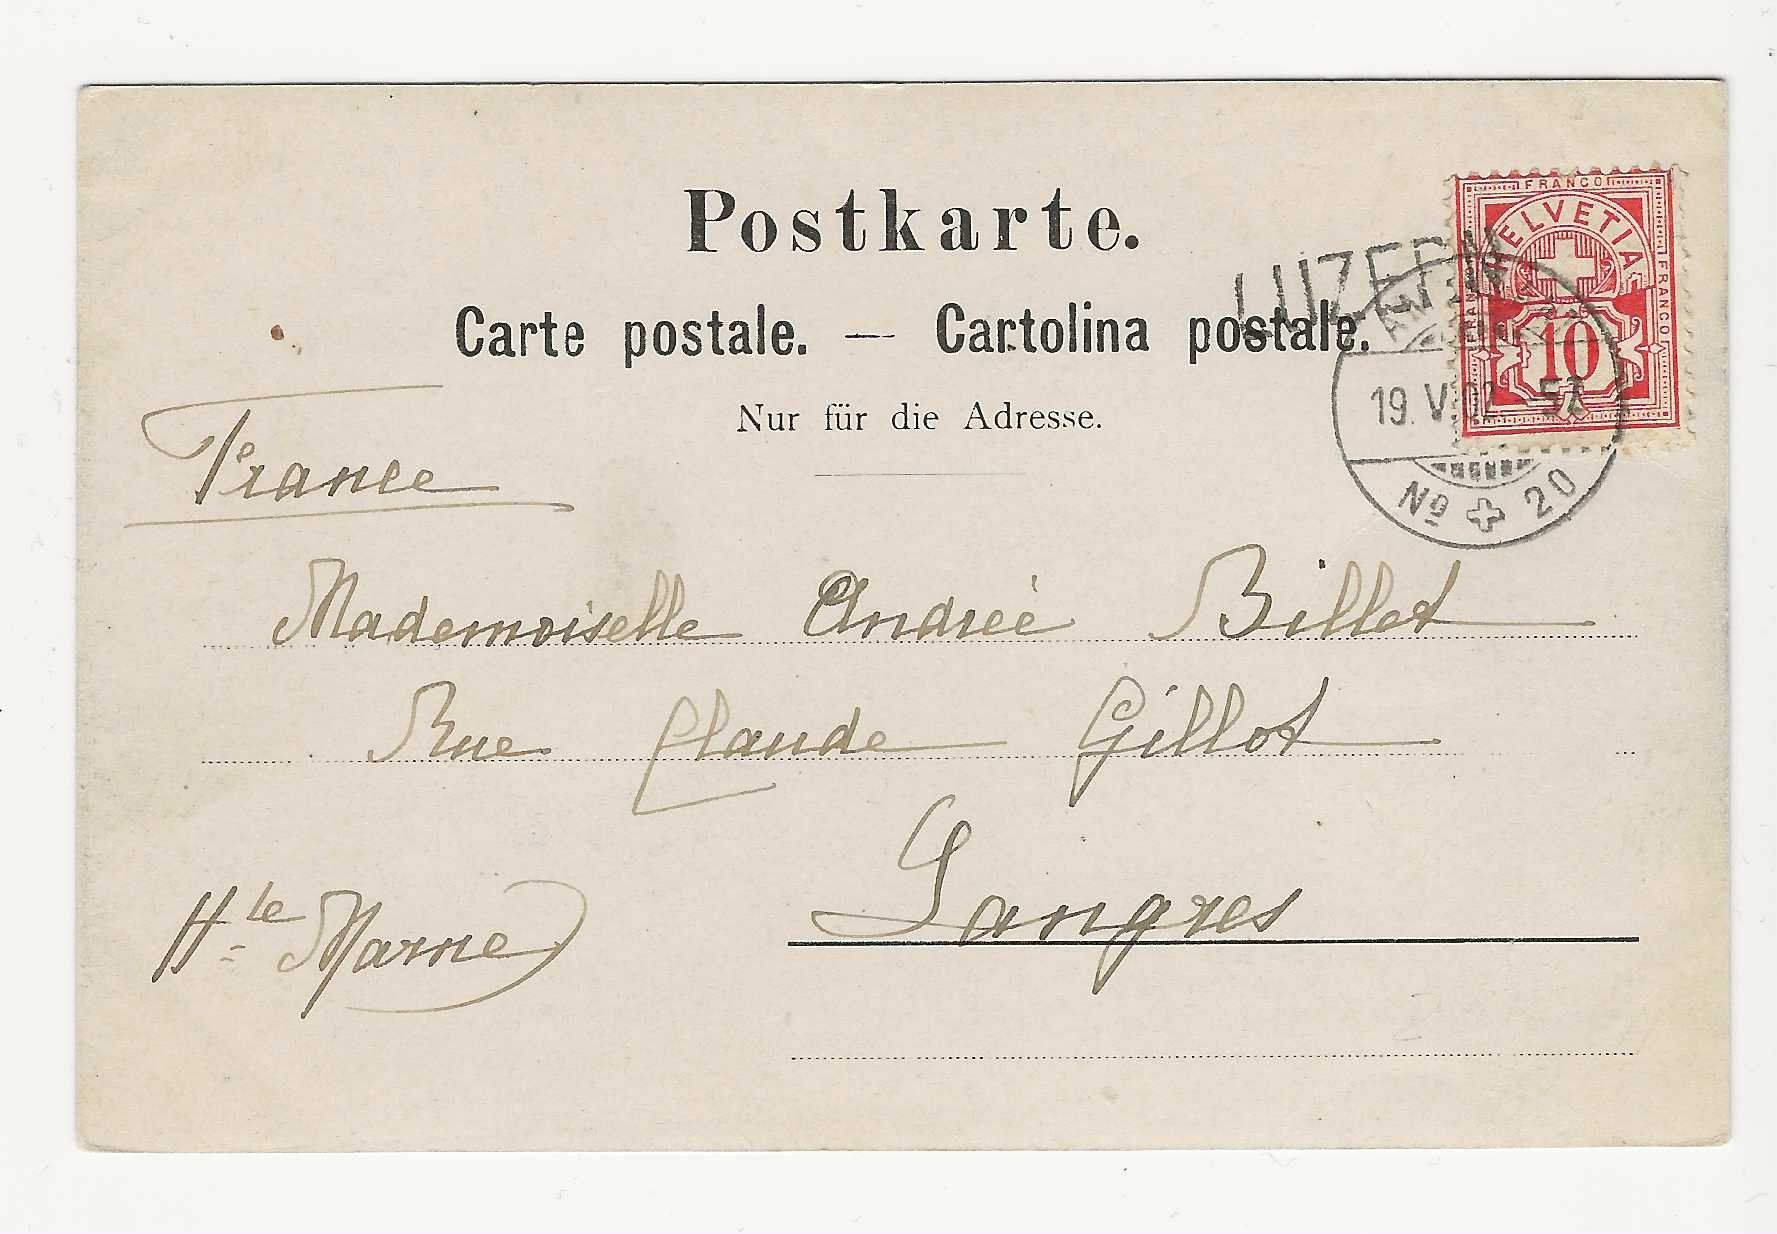 Postkarte.
Carte postale. — Cartolina postale.
Nur für die Adresse.
LUZERN
FRANCO
HELVETIA
FRANCO
FRANCO
10
19. V. 02 - 5
No 20
France
Mademoiselle Andreé Billet
Rue Claude Gillot
Langres
Hte Marne